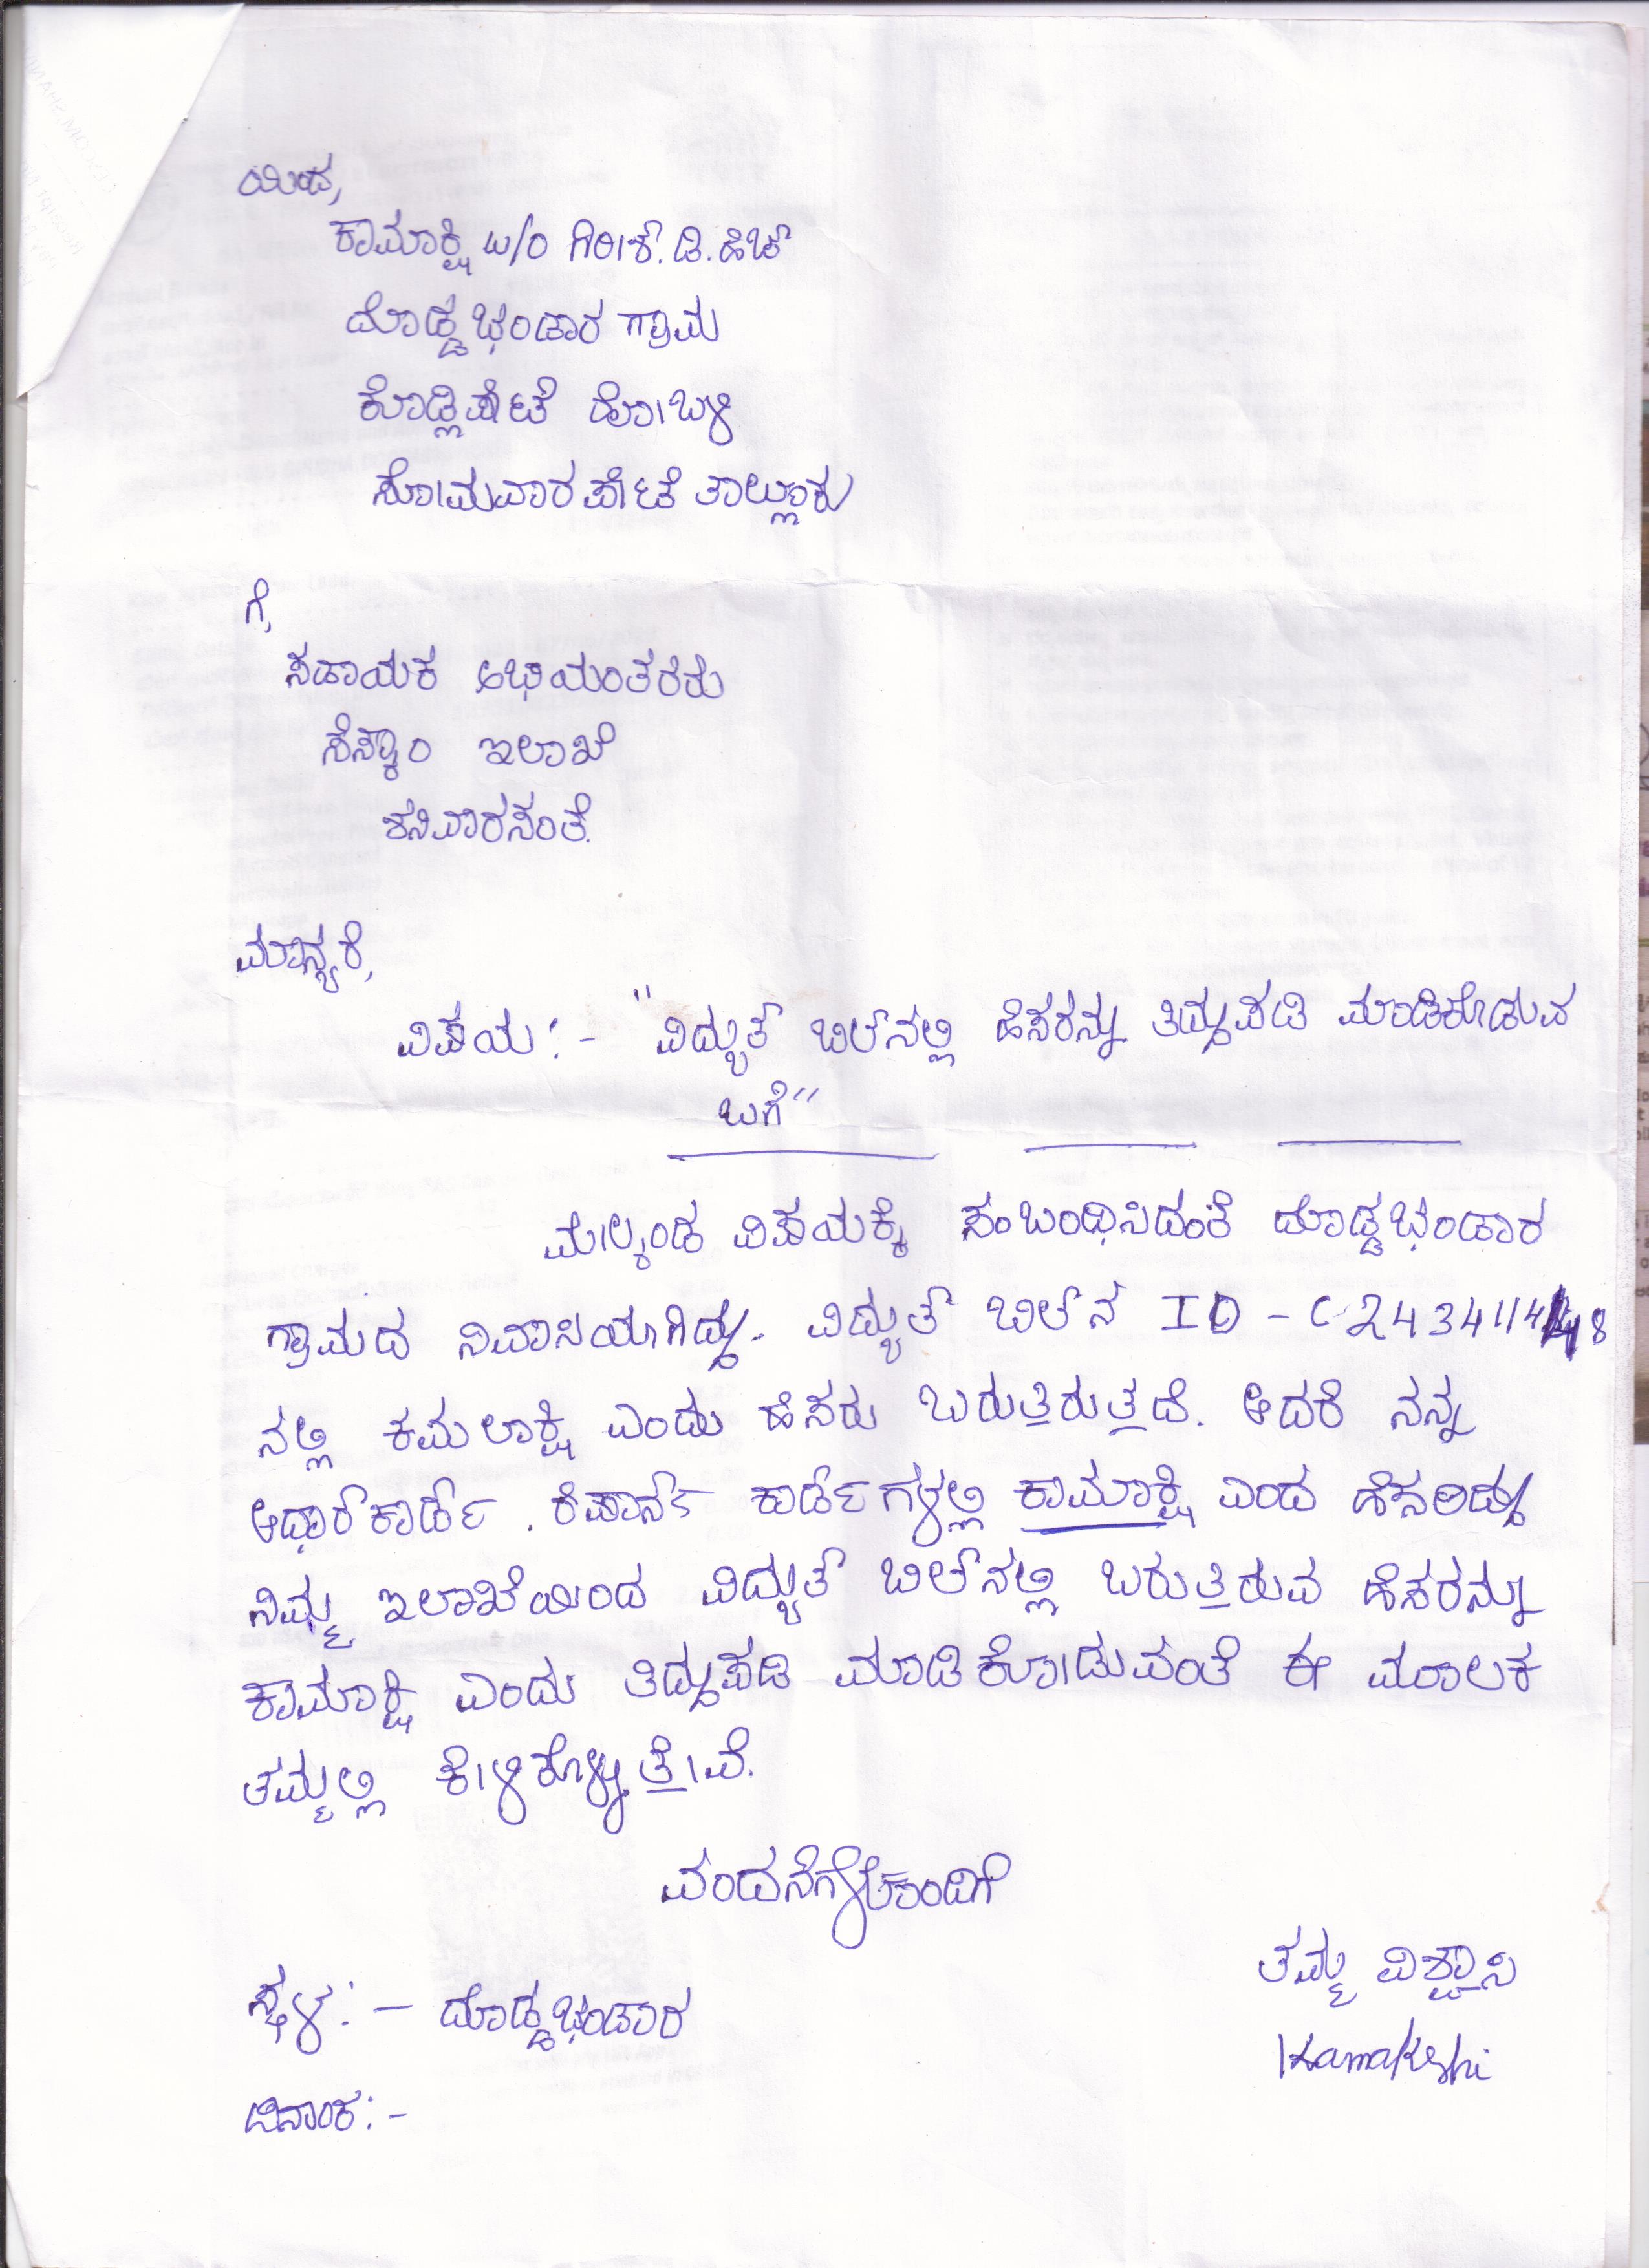 ಯಿಂದ,
ಕಾಮಾಕ್ಷಿ w/o ಗಿರೀಶ್.ಡಿ.ಹೆಚ್
ದೊಡ್ಡಭಂಡಾರ ಗ್ರಾಮ
ಕೊಡ್ಲಿಪೇಟೆ ಹೋಬಳಿ
ಸೋಮವಾರಪೇಟೆ ತಾಲ್ಲೂಕು
ಗೆ,
ಸಹಾಯಕ ಅಭಿಯಂತರರು
ಸೆಸ್ಕಾಂ ಇಲಾಖೆ
ಶನಿವಾರಸಂತೆ.
ಮಾನ್ಯರೆ,
ವಿಷಯ:- "ವಿದ್ಯುತ್ ಬಿಲ್‌ನಲ್ಲಿ ಹೆಸರನ್ನು ತಿದ್ದುಪಡಿ ಮಾಡಿಕೊಡುವ
ಬಗೆ"
ಮೇಲ್ಕಂಡ ವಿಷಯಕ್ಕೆ ಸಂಬಂಧಿಸಿದಂತೆ ದೊಡ್ಡಭಂಡಾರ
ಗ್ರಾಮದ ನಿವಾಸಿಯಾಗಿದ್ದು. ವಿದ್ಯುತ್ ಬಿಲ್‌ನ ID -
ನಲ್ಲಿ ಕಮಲಾಕ್ಷಿ ಎಂದು ಹೆಸರು ಬರುತ್ತಿರುತ್ತದೆ. ಆದರೆ ನನ್ನ
ಆಧಾರ್‌ಕಾರ್ಡ್. ರೆಷಾನ್ ಕಾರ್ಡ್‌ಗಳಲ್ಲಿ ಕಾಮಾಕ್ಷಿ ಎಂದ ಹೆಸರಿದ್ದು
ನಿಮ್ಮ ಇಲಾಖೆಯಿಂದ ವಿದ್ಯುತ್ ಬಿಲ್‌ನಲ್ಲಿ ಬರುತ್ತಿರುವ ಹೆಸರನ್ನು
ಕಾಮಾಕ್ಷಿ ಎಂದು ತಿದ್ದುಪಡಿ ಮಾಡಿಕೋಡುವಂತೆ ಈ ಮೂಲಕ
ತಮ್ಮಲ್ಲಿ ಕೇಳಿಕೊಳ್ಳುತ್ತೇವೆ.
ವಂದನೆಗಳೊಂದಿಗೆ
ತಮ್ಮ ವಿಶ್ವಾಸಿ
ಸ್ಥಳ:- ದೊಡ್ಡಭಂಡಾರ
Kamakshi
ದಿನಾಂಕ:-